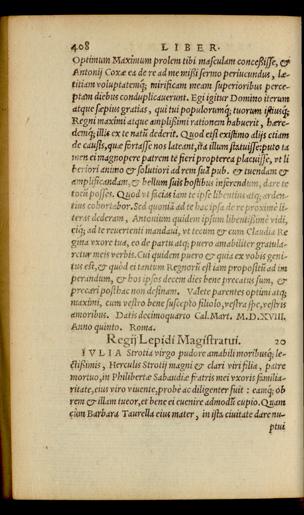 408 LIBER
Optimum Maximum prolem tibi masculam concessisse, &
Antonij Coxæ ea de re ad me missi sermo periucundus, læ-
titiam voluptatemq; mirificam meam superioribus perce-
ptam diebus conduplicauerunt. Egi igitur Domino iterum
atque sæpius gratias, qui tui populorumq; tuorum istiusq;
Regni maximi atque amplissimi rationem habuerit, hære-
demq; illis ex te natũ dederit. Quod etsi existimo alijs etiam
de causis, quæ fortasse nos lateant, ita illum statuisse: puto ta
men ei magnopere patrem te fieri propterea placuisse, vt li
beriori animo & solutiori ad rem suã pub. & tuendam &
amplificandam, & bellum suis hostibus inferendum, dare te
totũ posses. Quod vt facias iam te ipse libentius atq; arden-
tius cohortabor. Sed quoniã ad te hac ipsa de re proxime li-
teras dederam, Antonium quidem ipsum libentissime vidi,
eiq; ad te reuerenti mandaui, vt tecum & cum Claudia Re
gina vxore tua, eo de partu atq; puero amabiliter gratula-
retur meis verbis. Cui quidem puero & quia ex vobis geni-
tus est, & quòd ei tantum Regnorũ est iam propositũ ad im
perandum, & hos ipses decem dies bene precatus sum, &
precari posthac non desinam. Valete parentes optimi atq;
maximi, cum vestro bene suscepto filiolo, vestra spe, vestris
amoribus. Datis decimoquarto Cal. Mart. M.D.XVIII.
Anno quinto. Roma.
Regij Lepidi Magistratui. 20
IVLIA Strotia virgo pudore amabili moribusq; le-
ctissimis, Herculis Strotij magni & clari viri filia, patre
mortuo, in Philibertæ Sabaudiæ fratris mei vxoris familia-
ritate, eius viro viuente, probè ac diligenter fuit: eamq; ob
rem & illam tueor, et bene ei euenire admodũ cupio. Quam
cùm Barbara Taurella eius mater, in ista ciuitate dare nu-
ptui